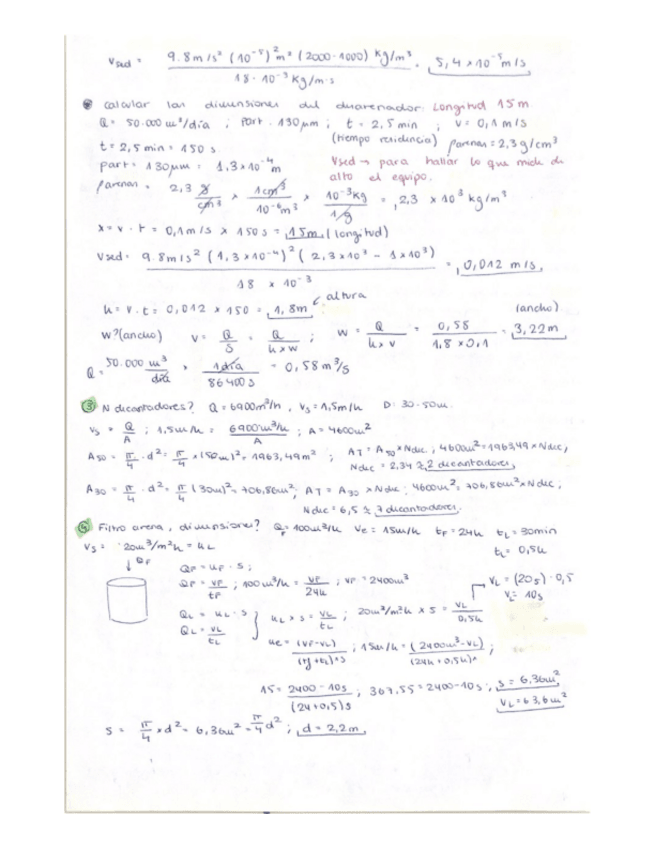 Vsed = 9.8m/s² (10⁻⁵)² m² (2000-1000) kg/m³ / 18·10⁻³ kg/m·s = 5,4 x 10⁻⁵ m/s
calcular las dimensiones del desarenador. Longitud 15m.
Q = 50.000 m³/día ; part. 130µm ; t = 2,5 min ; v = 0,1 m/s
t = 2,5 min = 150 s. (tiempo residencia) ρarenas = 2,3 g/cm³
part = 130µm = 1,3x10⁻⁴ m Vsed → para hallar lo que mide de
alto el equipo.
ρarenas = 2,3 g/cm³ x 1cm³/10⁻⁶m³ x 10⁻³kg/1g = 2,3 x 10³ kg/m³
x = v · t = 0,1m/s x 150s = 15m (longitud)
Vsed = 9.8m/s² (1,3x10⁻⁴)² (2,3x10³ - 1x10³) / 18 x 10⁻³ = 0,012 m/s
h = v.t = 0,012 x 150 = 1,8m altura
(ancho)
W?(ancho) v = Q/S = Q/hxw ; W = Q/hxv = 0,58/1,8x0,1 = 3,22m
Q = 50.000 m³/día x 1día/86400s = 0,58 m³/s
③ N decantadores? Q = 6900m³/h , Vs = 1,5m/h D: 30-50m.
Vs = Q/A ; 1,5m/h = 6900m³/h / A ; A = 4600m²
A50 = π/4 · d² = π/4 x (50m)² = 1963,49m² ; AT = A50 x Ndec , 4600m² = 1963,49 x Ndec ,
Ndec = 2,34 ≈ 2 decantadores
A30 = π/4 · d² = π/4 (30m)² = 706,86m² ; AT = A30 x Ndec ; 4600m² = 706,86m² x Ndec ,
Ndec = 6,5 ≈ 7 decantadores.
④ Filtro arena, dimensiones? QF = 100m³/h Ve = 15m/h tF = 24h tL = 30min
Vs = 20m³/m²h = uL tL = 0,5h
↓ QF QF = uF · S ; VL = (20s) · 0,5
QF = VF/tF ; 100m³/h = VF/24h ; VF = 2400m³ VL = 10s
QL = uL · S
QL = VL/tL } uL x S = VL/tL ; 20m³/m²h x S = VL/0,5h
ue = (VF-VL)/(tF+tL)·S ; 15m/h = (2400m³-VL)/(24h+0,5h)s ;
15 = 2400-10s/(24+0,5)s ; 367,5s = 2400-10s ; S = 6,36m²
VL = 63,6m²
S = π/4 x d² = 6,36m² = π/4 d² ; d = 2,2m